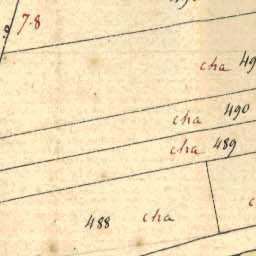 7.8
cha 49
cha 490
cha 489
488 cha
c